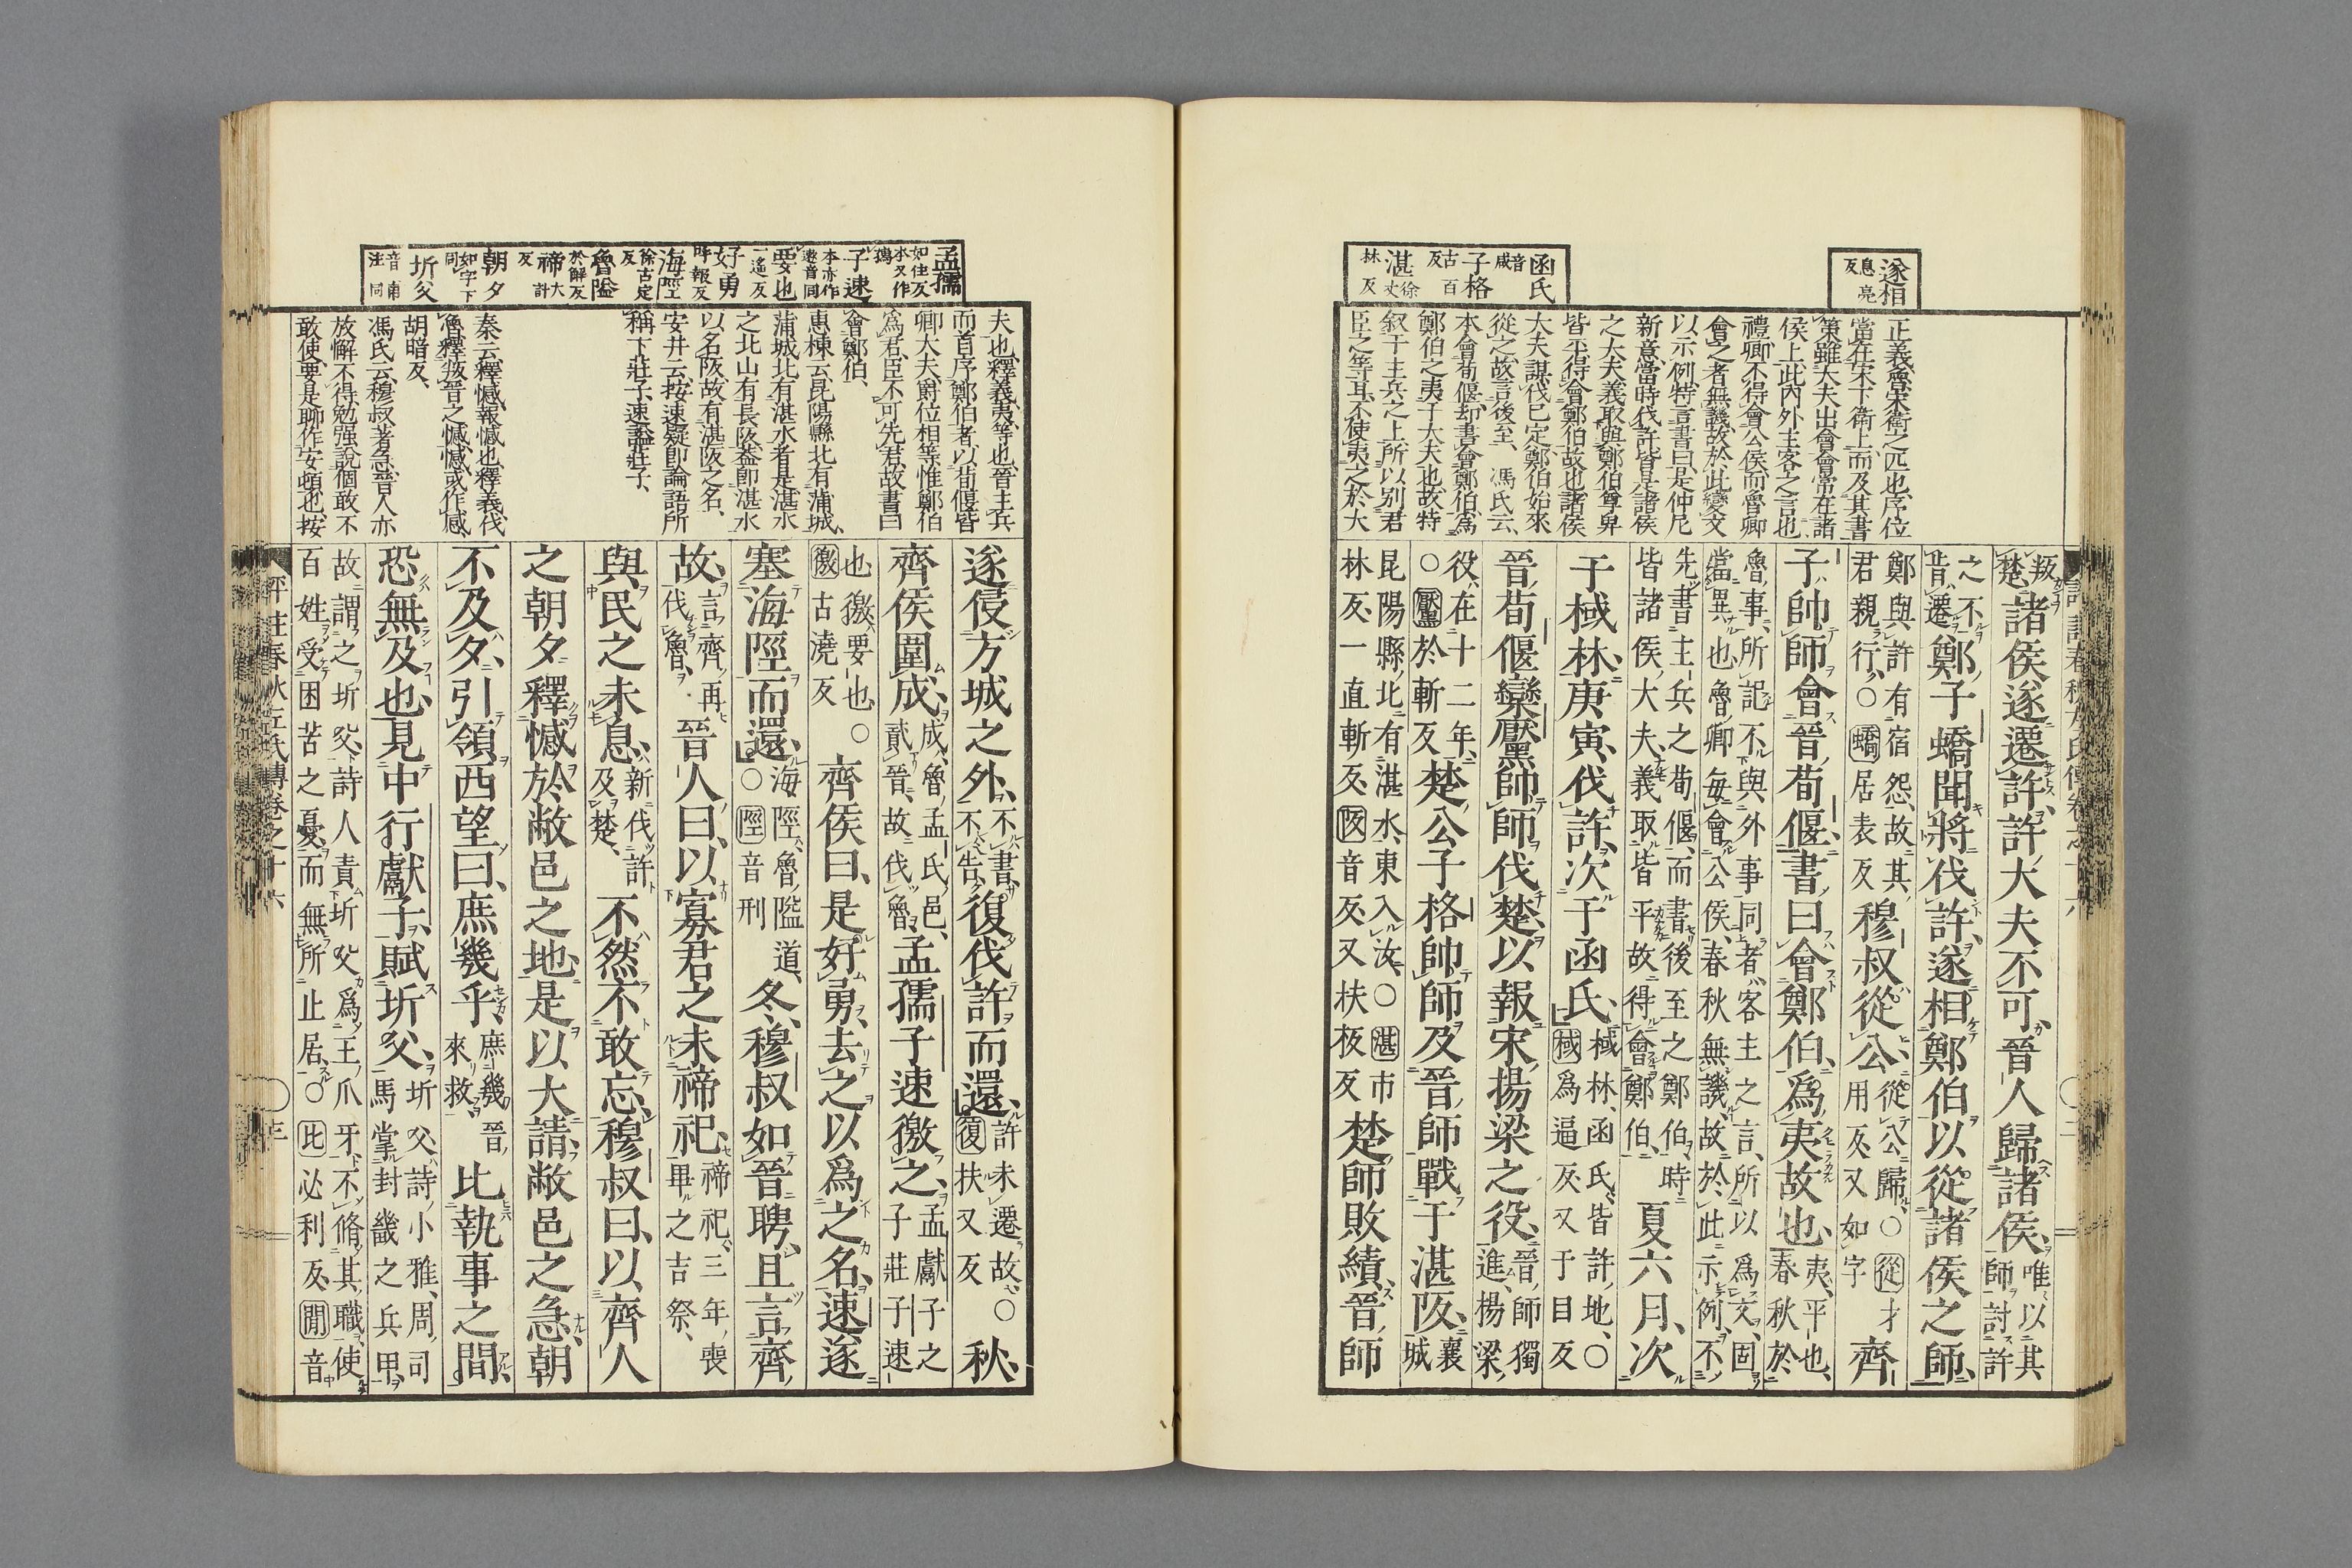 遂相息亮反
函氏音咸
子格古百反
湛徐丈林反
正義魯宋衛之匹也序位
當在宋下衛上而及其書
策雖大夫出會會常在諸
侯上此內外主客之言也
禮卿不得會公侯而魯卿
會之者無譏故於此變文
以示例特言書曰是仲尼
新意當時伐許皆是諸侯
之大夫義取與鄭伯尊卑
皆平得會鄭伯故也諸侯
大夫謀伐已定鄭伯始來
從之故言後至 馮氏云
本會荀偃却書會鄭伯爲
鄭伯之夷于大夫也故特
叙于主兵之上所以別君
臣之等耳不使夷之於大
叛楚諸侯遂遷許許大夫不可晉人歸諸侯唯以其師討許
之不肯遷鄭子蟜聞將伐許遂相鄭伯以從諸侯之師
鄭與許有宿怨故其君親行○蟜居表反穆叔從公從公歸○從才用反又如字齊
子帥師會晉荀偃書曰會鄭伯爲夷故也夷平也春秋於
魯事所記不與外事同者客主之言所以爲文固當異也魯卿每會公侯春秋無譏故於此示例不
先書主兵之荀偃而書後至之鄭伯時皆諸侯大夫義取皆平故得會鄭伯夏六月次
于棫林庚寅伐許次于函氏棫林函氏皆許地○棫爲逼反又于目反
晉荀偃欒黶帥師伐楚以報宋揚梁之役晉師獨進楊梁
役在十二年○黶於斬反楚公子格帥師及晉師戰于湛阪襄城
昆陽縣北有湛水東入汝○湛市林反一直斬反阪音反又扶板反楚師敗績晉師
孟孺如住反本又作獳
子速本亦作遬音同
要也一遙反
好勇呼報反
海陘徐古定反
魯隘於懈反
禘大計反
朝夕如字下同
圻父音南注同
夫也釋義夷等也晉主兵
而首序鄭伯者以荀偃皆
卿大夫爵位相等惟鄭伯
爲君臣不可先君故書曰
會鄭伯
惠棟云昆陽縣北有蒲城
蒲城北有湛水者是湛水
之北山有長阪葢即湛水
以名阪故有湛阪之名
安井云按速疑即論語所
稱下莊子速諡莊子
秦云釋憾報憾也釋義伐
魯釋叛晉之憾憾或作感
胡暗反
馮氏云穆叔著急晉人亦
放懈不得勉强說個敢不
敢使要是聊作安頓也按
遂侵方城之外不書不告復伐許而還許未遷故○復扶又反秋
齊侯圍成成魯孟氏邑貳晉故伐魯孟孺子速徼之孟獻子之子莊子速
也徼要也○徼古澆反齊侯曰是好勇去之以爲之名速遂
塞海陘而還海陘魯隘道○陘音刑冬穆叔如晉聘且言齊
故言齊再伐魯晉人曰以寡君之未禘祀禘祀三年喪畢之吉祭
與民之未息新伐許及楚不然不敢忘穆叔曰以齊人
之朝夕釋憾於敝邑之地是以大請敝邑之急朝
不及夕引領西望曰庶幾乎庶幾晉來救比執事之間
恐無及也見中行獻子賦圻父圻父詩小雅周司馬掌封畿之兵甲
故謂之圻父詩人責圻父爲王爪牙不脩其職使百姓受困苦之憂而無所止居○比必利反間音
評註春秋左氏傳卷之十六